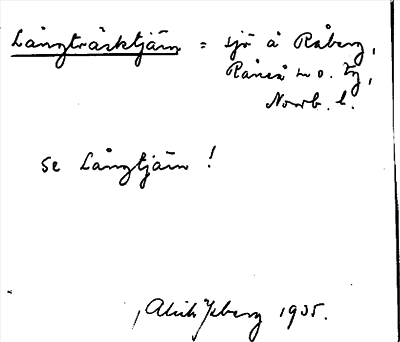 Långträsktjärn = sjö å Råberg,
Råneå sn o. tg,
Norrb. l.
se Långtjärn !
1935.